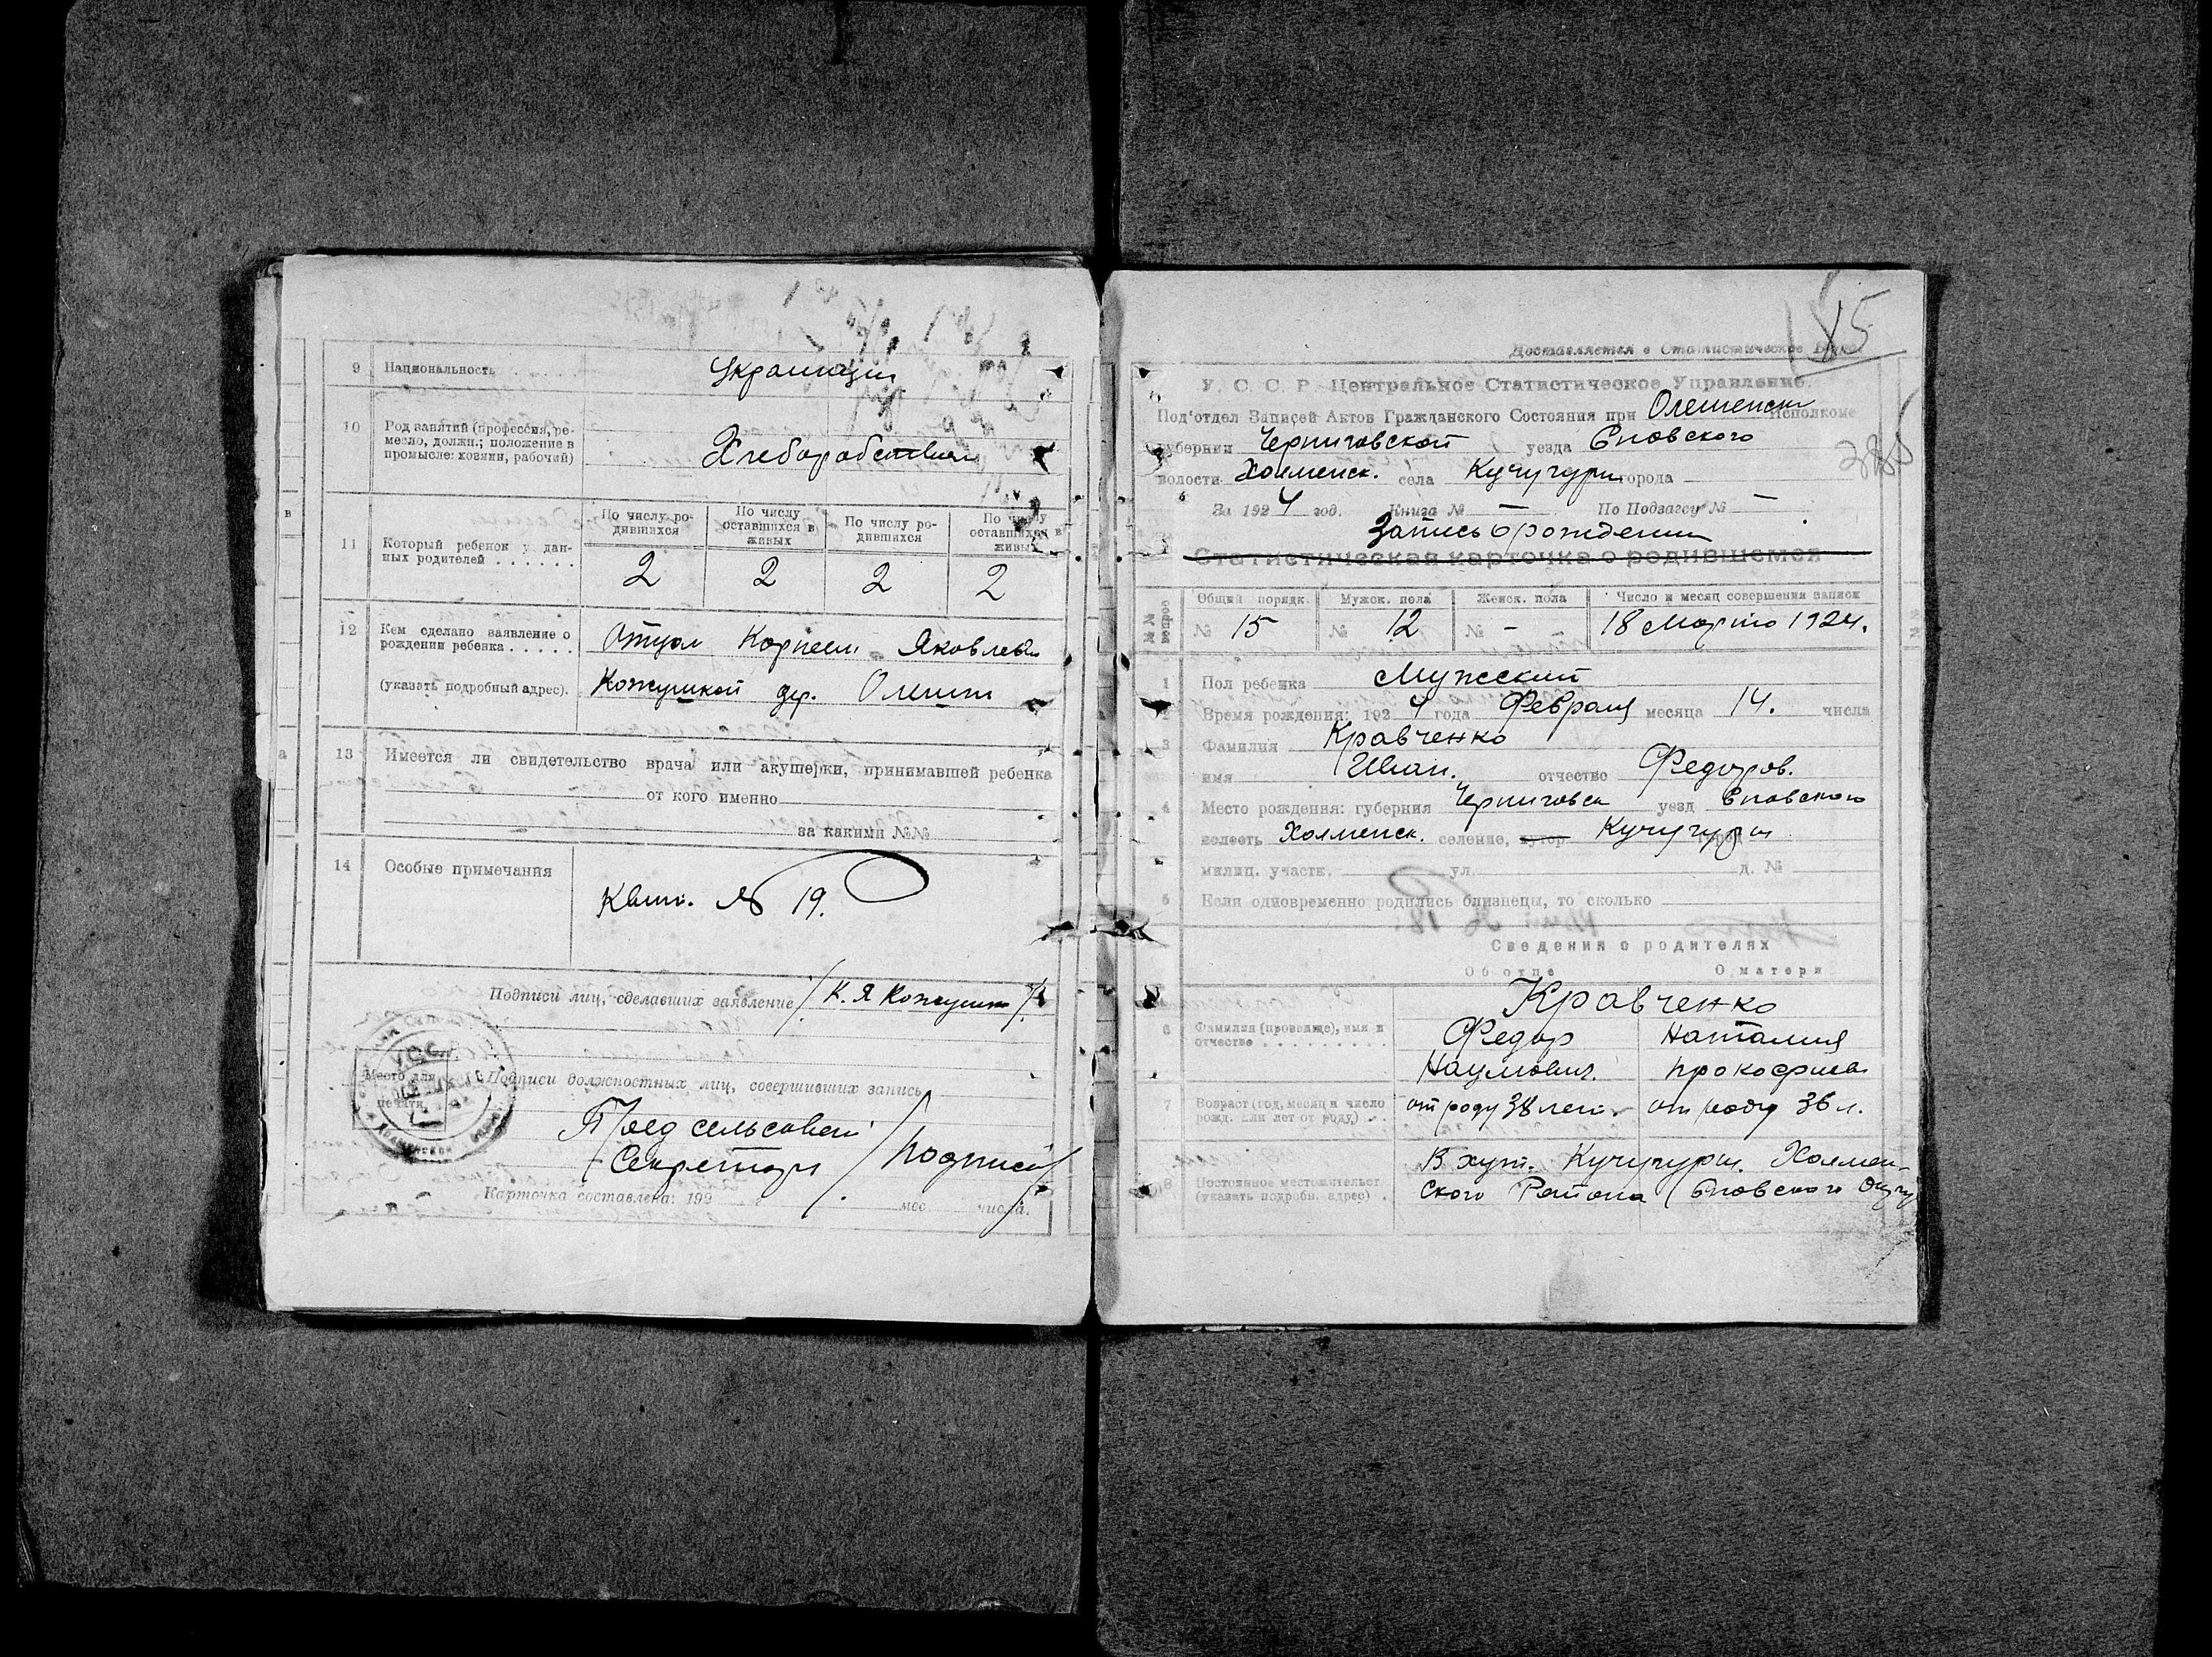 9 Национальность Украинцы
10 Род занятий (профессия, ре-
месло, должн.; положение в
промысле: хозяин, рабочий) Хлеборобством
11 Который ребенок у дан-
ных родителей
По числу ро-
дившихся
По числу
оставшихся в
живых
По числу ро-
дившихся
По числу
оставшихся в
живых
2 2 2 2
12 Кем сделано заявление о
рождении ребенка Отцом Корнеем Яковлев.
(указать подробный адрес). Кожушкой дер. Олешни
13 Имеется ли свидетельство врача или акушерки, принимавшей ребенка
от кого именно
за какими №№
14 Особые примечания
Квит. № 19.
Подписи лиц, сделавших заявление /К. Я Кожушко/
Место для
печати
Подписи должностных лиц, совершивших запись
Пред сельсовета
Секретарь /подписи/
Карточка составлена: 192 мес. числа.
15
Доставляется в Статистическое Бюро
У. С. С. Р. Центральное Статистическое Управление.
Под'отдел Записей Актов Гражданского Состояния при Олешенск Исполкоме
губернии Черниговской уезда Сновского
волости Холменск. села Кучугуры города
За 1924 год. Книга № — По Подзагсу № —
Запись о рождении
Статистическая карточка о родившемся
№№ вопрос
Общий порядк. Мужск. пола Женск. пола Число и месяц совершения записи
№ 15 № 12 № - 18 Марта 1924.
1 Пол ребенка Мужеский
2 Время рождения: 1924 года Февраля месяца 14. числа
3 Фамилия Кравченко
имя Иван. отчество Федоров.
4 Место рождения: губерния Черниговск уезд Сновского
волость Холменск. селение, хутор Кучугуры
милиц. участк. ул. д. №
5 Если одновременно родились близнецы, то сколько
Сведения о родителях
Об отце О матери
Кравченко
6 Фамилия (прозвище), имя и
отчество
Федор Наталия
Наумович. Прокофиев
7 Возраст (год, месяц и число
рожд. или лет от роду) от роду 38 лет. от роду 36 л.
8 Постоянное местожительст.
(указать подробн. адрес)
В хут. Кучугуры. Холмен-
ского Района Сновского Округ